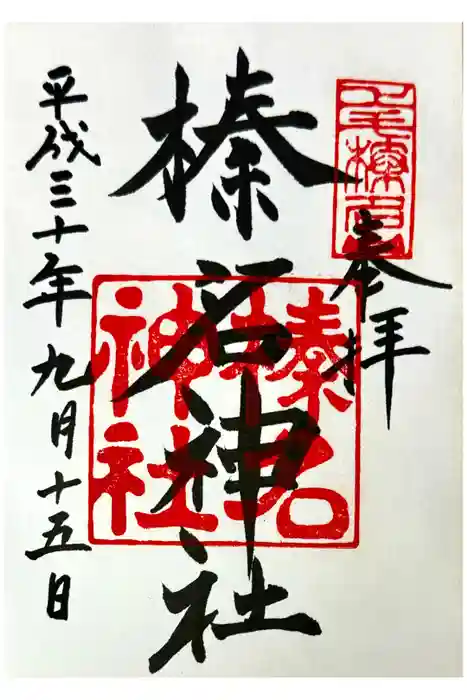 奉拝
榛名神社
平成三十年九月十五日
榛名
神社